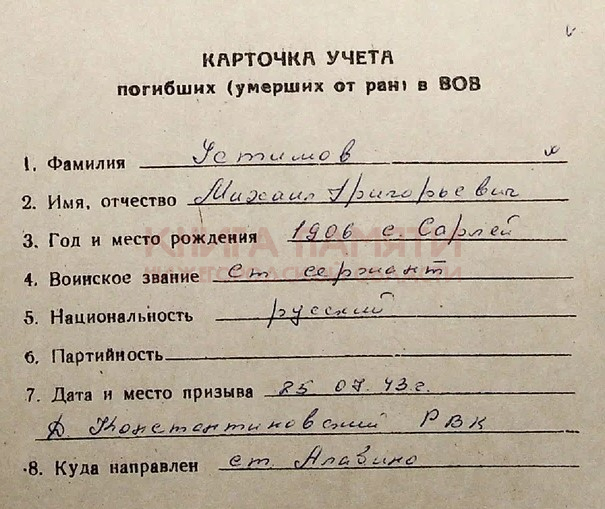 КАРТОЧКА УЧЕТА
погибших (умерших от ран) в ВОВ
1. Фамилия Устимов
2. Имя, отчество Михаил Григорьевич
КНИГА ПАМЯТИ
3. Год и место рождения 1906 с Сарлей
НИЖЕГОРОДСКОЙ ОБЛАСТИ
4. Воинское звание ст сержант
5. Национальность русский
6. Партийность
7. Дата и место призыва 25 07.43 г.
Д Константиновский РВК
8. Куда направлен ст. Алабино